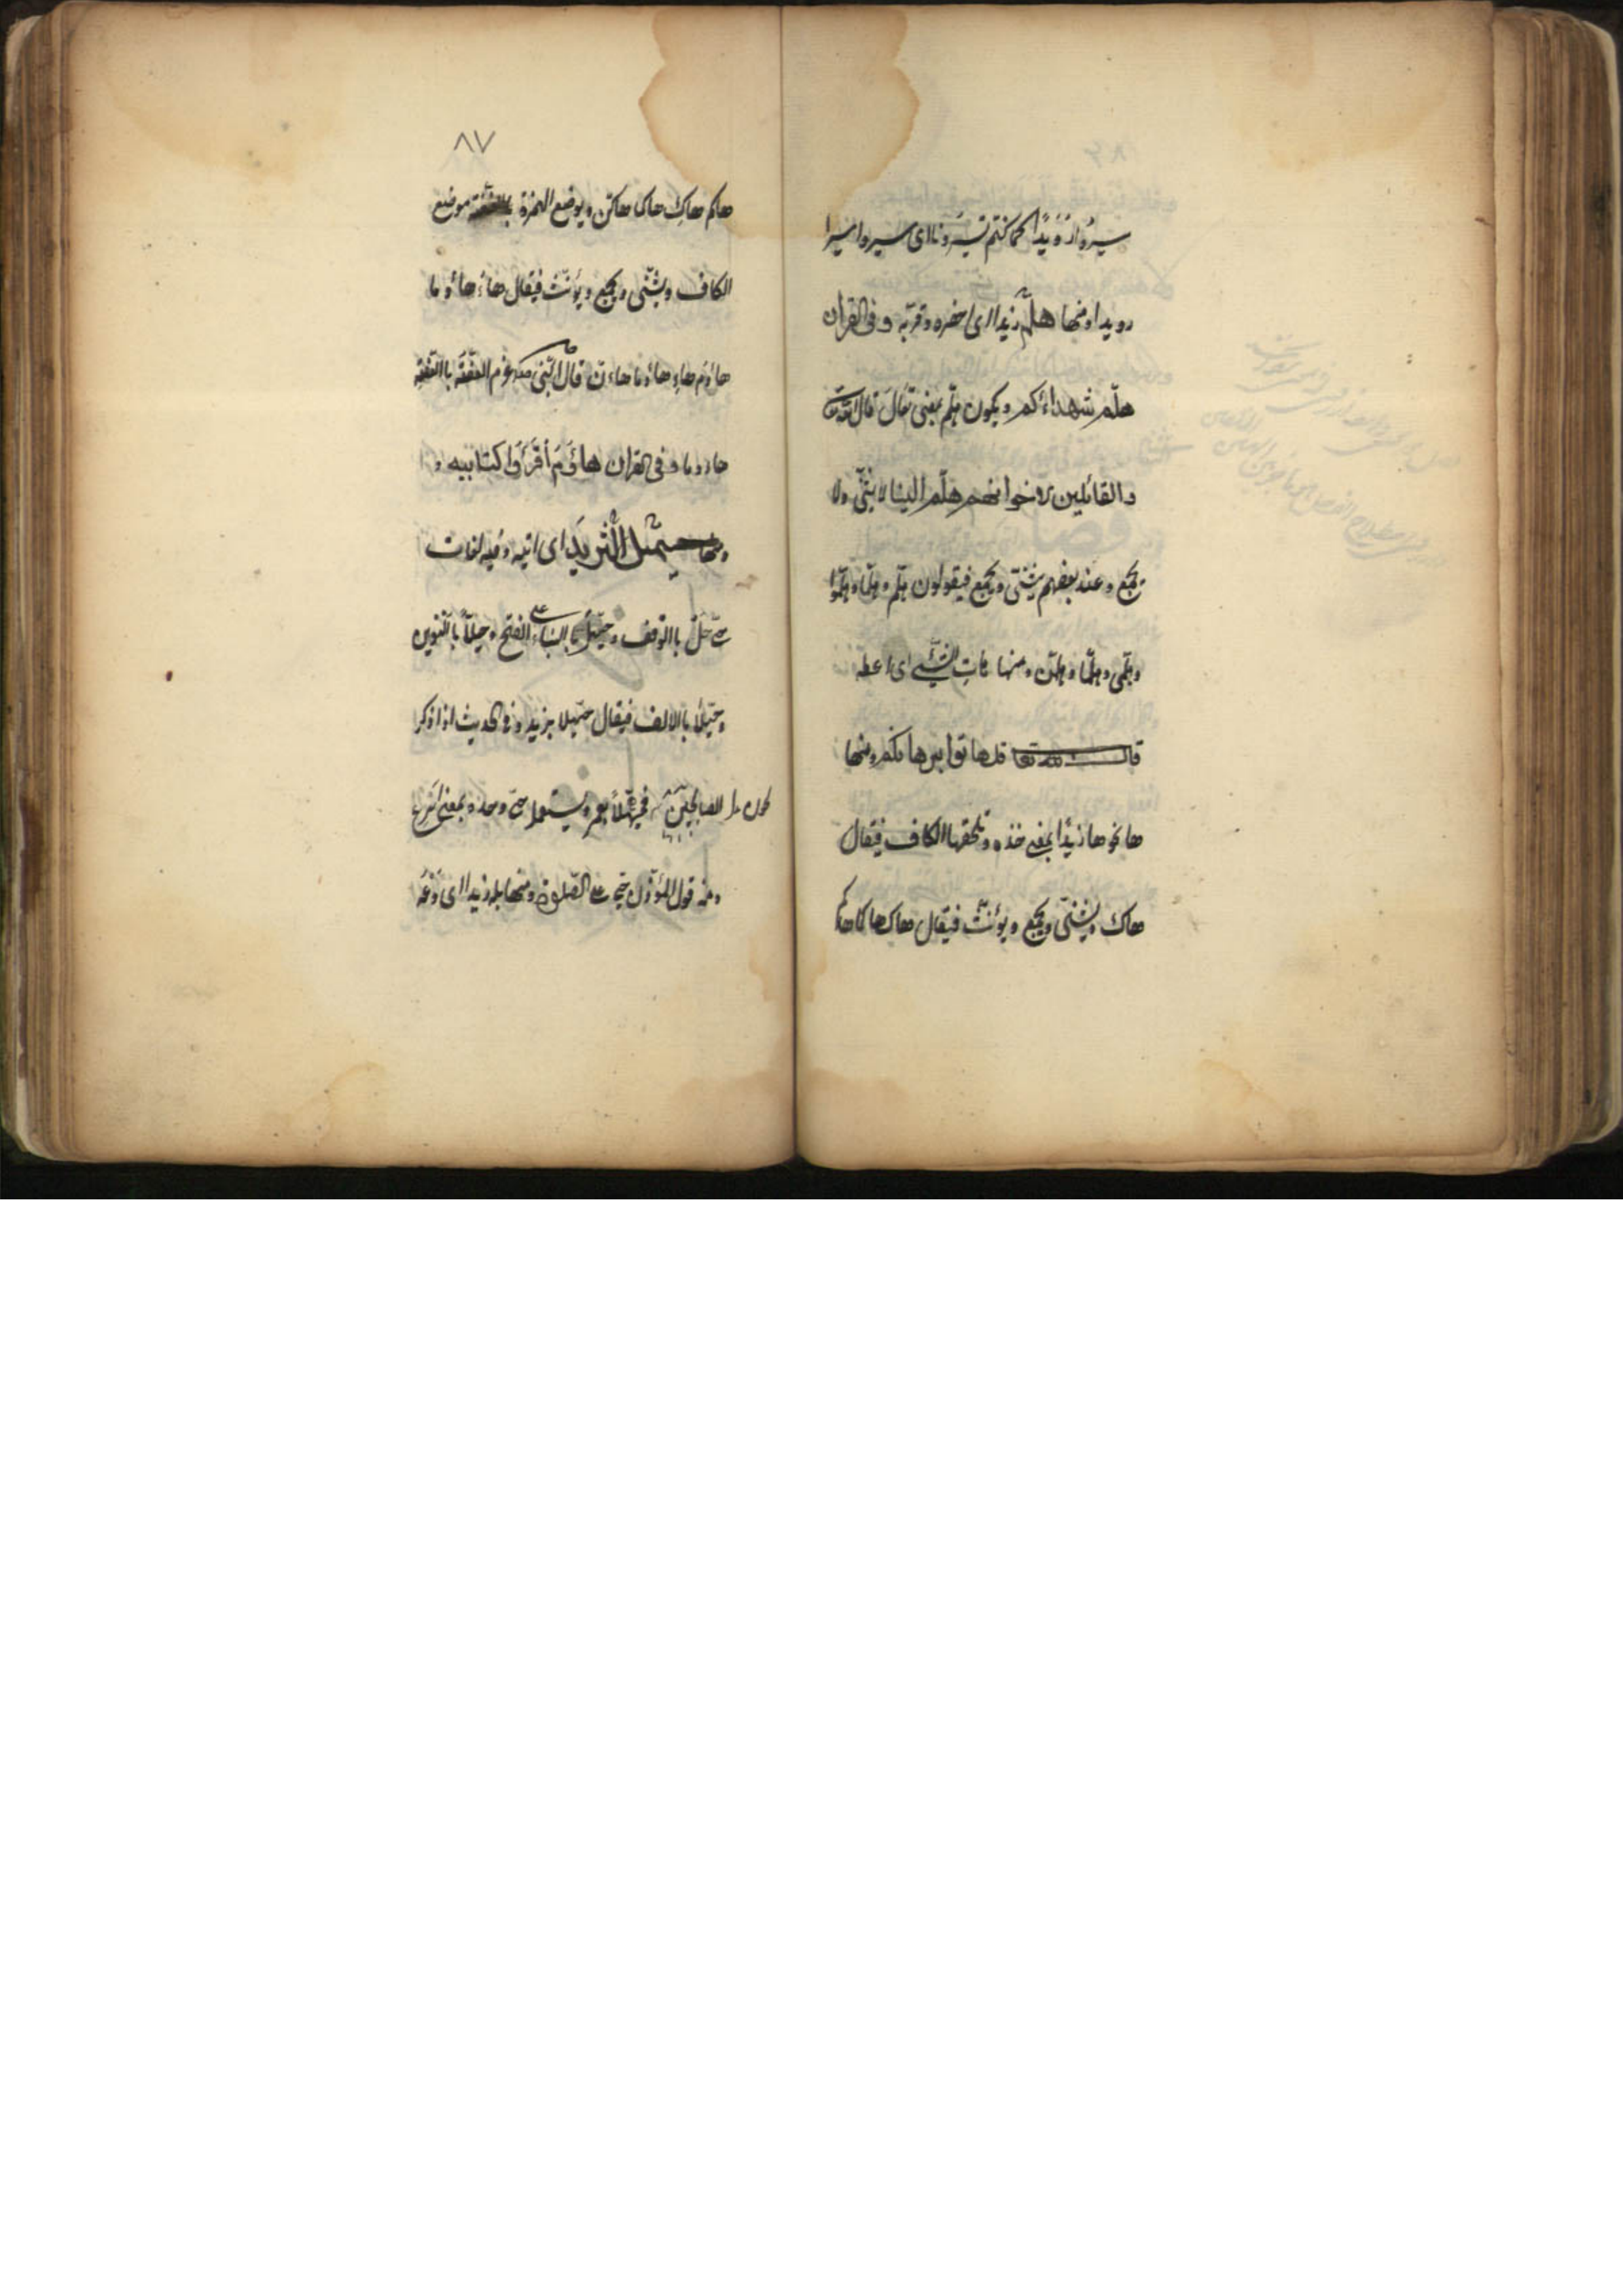 سيروا رويدًا كما كنتم تسيرونا اى سيروا سيرا
رويدا ومنها هلمّ زيدا اى احضره وقربه وفى القران
هلمّ شهداءكم ويكون هلمّ بمعنى تعال قال الله تعا
والقائلين لاخوانهم هلمّ الينا لا يثنّى ولا
يجمع وعند بعضهم يثنّى ويجمع فيقولون هلم وهلما وهلموا
وهلمى وهلما وهلمن ومنها هات الشئ اى اعطه
قال الله تعا قل هاتوا برهانكم ومنها
ها نحو ها زيدًا بمعنى خذه وتلحقها الكاف فيقال
هاك ويثنّى ويجمع ويؤنّث فيقال هاك هاكما هاكم
٨٧
هاكم هاكِ هاكما هاكنّ ويوضع الهمزة موضع
الكاف ويثنّى ويجمع ويؤنّث فيقال هاءَ هاؤما
هاؤم هاءِ هاؤما هاءن قال النّبى
وفى القران هاؤم اقرَؤا كتابيه
ومنها حيّهل الثريدَ اى اتيه وفيه لغات
حىّ هلْ بالوقف وحيّهلَ بالبناء على الفتح وحيهلًا بالتنوين
وحيّهلا بالالف فيقال حيّهلا بزيد وفى الحديث اذا ذكر
الصالحين فحيّهلًا بعمر ويستعمل حىّ وحده بمعنى اسرع
ومنه قول المؤذن حىّ على الصلوة ومنها بله زيدا اى دَعْه